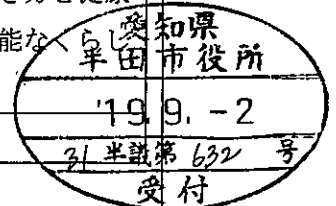 能なくらし
愛知県
半田市役所
'19.9.-2
31半議第632号
受付